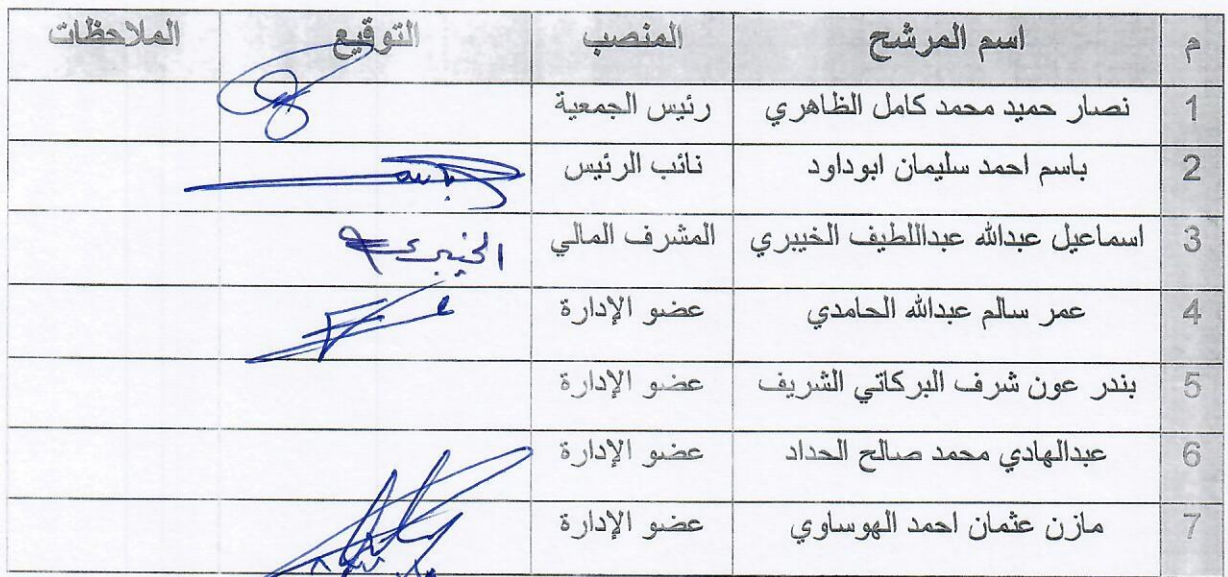 م اسم المرشح المنصب التوقيع الملاحظات
1 نصار حميد محمد كامل الظاهري رئيس الجمعية
2 باسم احمد سليمان ابوداود نائب الرئيس
3 اسماعيل عبدالله عبداللطيف الخيبري المشرف المالي الخيبري
4 عمر سالم عبدالله الحامدي عضو الإدارة
5 بندر عون شرف البركاتي الشريف عضو الإدارة
6 عبدالهادي محمد صالح الحداد عضو الإدارة
7 مازن عثمان احمد الهوساوي عضو الإدارة